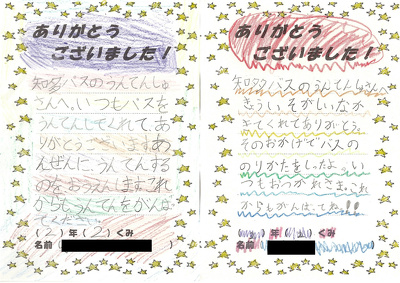 ありがとう
ございました!
知多バスのうんてんしゅ
さんへ。いつもバスを
うんてんしてくれて、あ
りがとうございます。あ
んぜんに、うんてんする
のをおうえんします。これ
からもうんてんをがんば
てください。
(2)年(2)くみ
名前( )
ありがとう
ございました!
知多バスのうんてんしゅさんへ
きょういそがしいなか
きてくれてありがとう。
そのおかげでバスの
のりかたをしったよ。いい
つもおつかれさま。これ
からもがんばってね!!
年( )くみ
名前( )